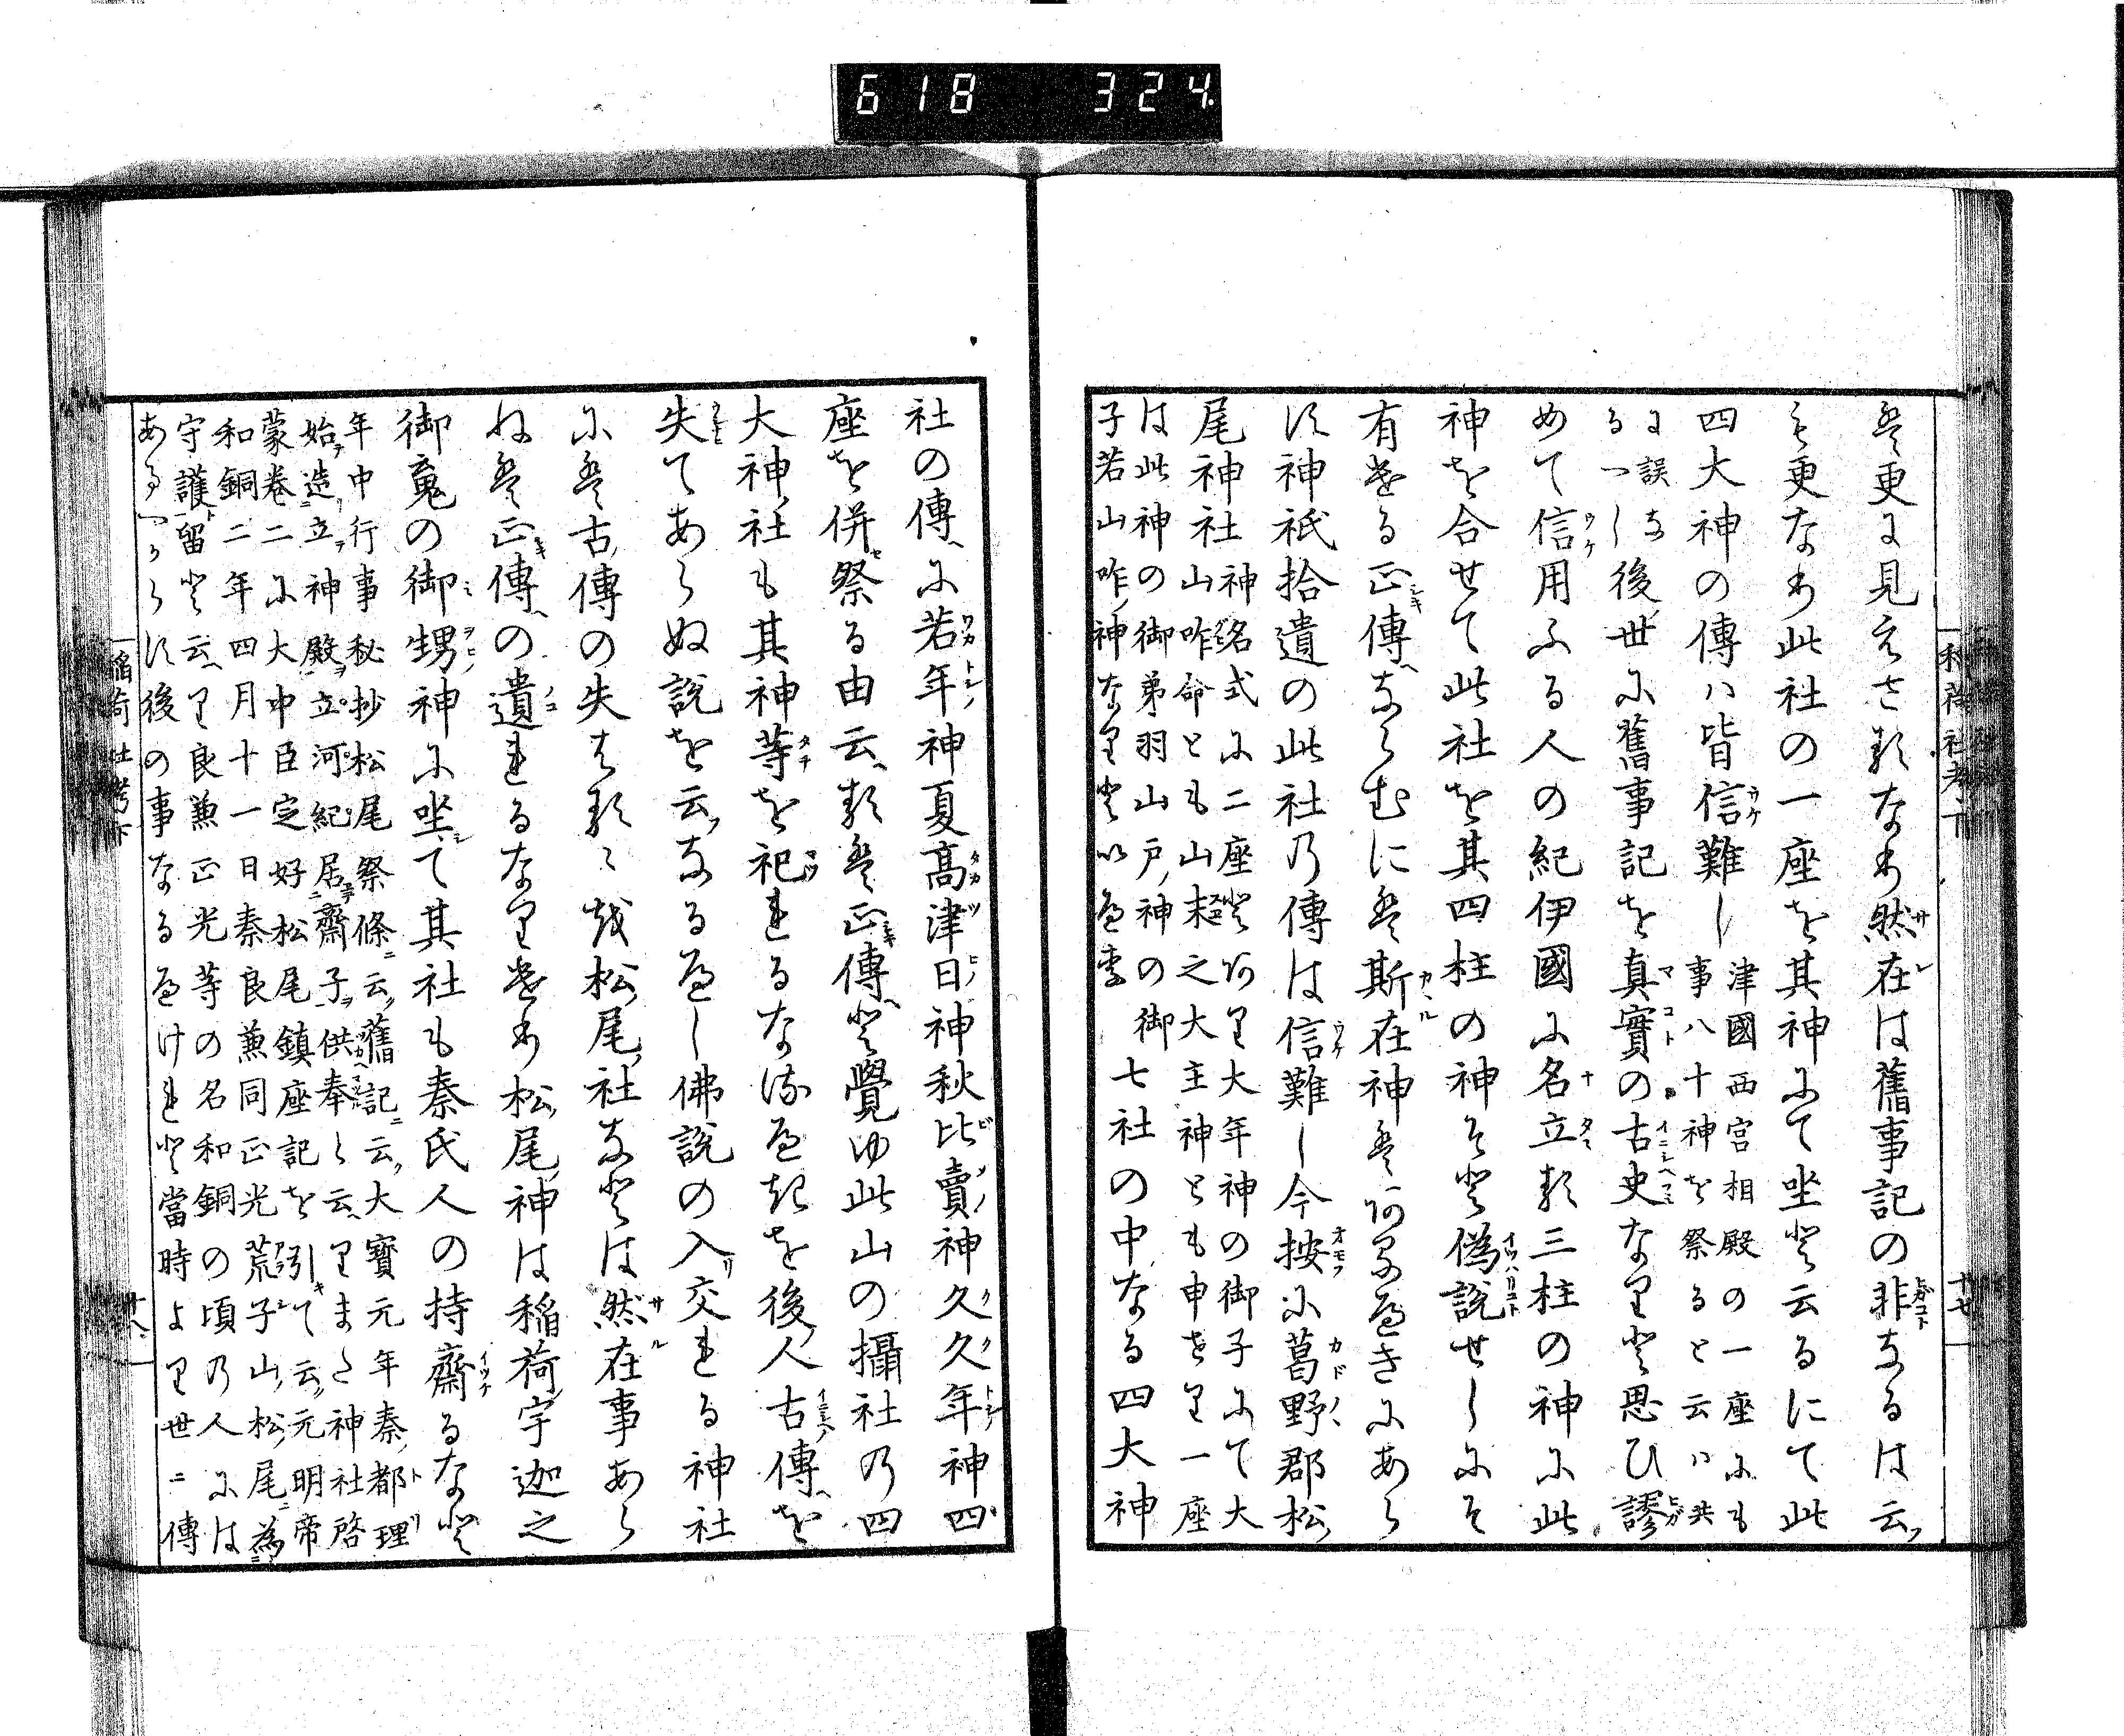 6 18 324.
は更に見えざるなり然在は舊事記の非なるは云
も更なり此社の一座を其神にて坐と云るにて此
四大神の傳ハ皆信難し
津國西宮相殿の一座にも
事八十神を祭ると云ハ共
に誤な
るべし
後世に舊事記を真實の古史なりと思ひ謬
めて信用ふる人の紀伊國に名立る三柱の神に此
神を合せて此社を其四柱の神ぞと偽説せしにぞ
有ける正傳ならむには斯在神は
にあら
ず神祇拾遺の此社乃傳は信難し今按に葛野郡松
尾神社
神名式に二座とあり大年神の御子にて大
山咋命とも山末之大主神とも申せり一座
は此神の御弟羽山戸神の御
子若山咋神なりと以へり
七社の中なる四大神
社の傳に若年神夏高津日神秋比賣神久久年神四
座を併祭る由云るは正傳と覺ゆ此山の攝社乃四
大神社も其神等を祀れるなるべきを後人古傳を
失てあらぬ説を云なるべし佛説の入交れる神社
には古傳の失はるゝ故松尾社などは然在事あら
ねば正傳の遺れるなりけり松尾神は稲荷宇迦之
御魂の御甥神に坐て其社も秦氏人の持齋るなど
年中行事秘抄松尾祭條云舊記云大寶元年秦都理
始造立神殿立河紀居齋子供奉と云りまた神社啓
蒙巻二に大中臣定好松尾鎮座記を引て云元明帝
和銅二年四月十一日秦良兼同正光荒子山松尾為
守護留と云り良兼正光等の名和銅の頃乃人には
あるべからず後の事なるべけれど當時より世ニ傳
稲荷社考下
十八
稲荷社考下
十七